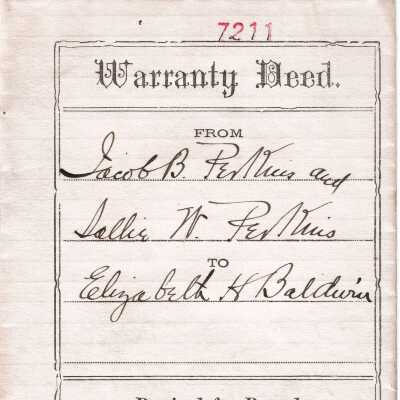 7211
Warranty Deed.
FROM
Jacob B. Perkins and
Sallie W. Perkins
TO
Elizabeth H Baldwin